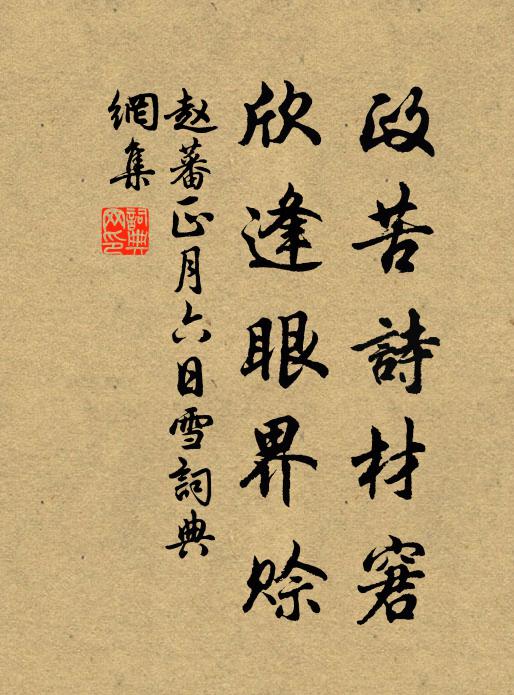 政苦詩材窘
欣逢眼界賒
赵蕃正月六日雪詞典
網集
詞典
网印